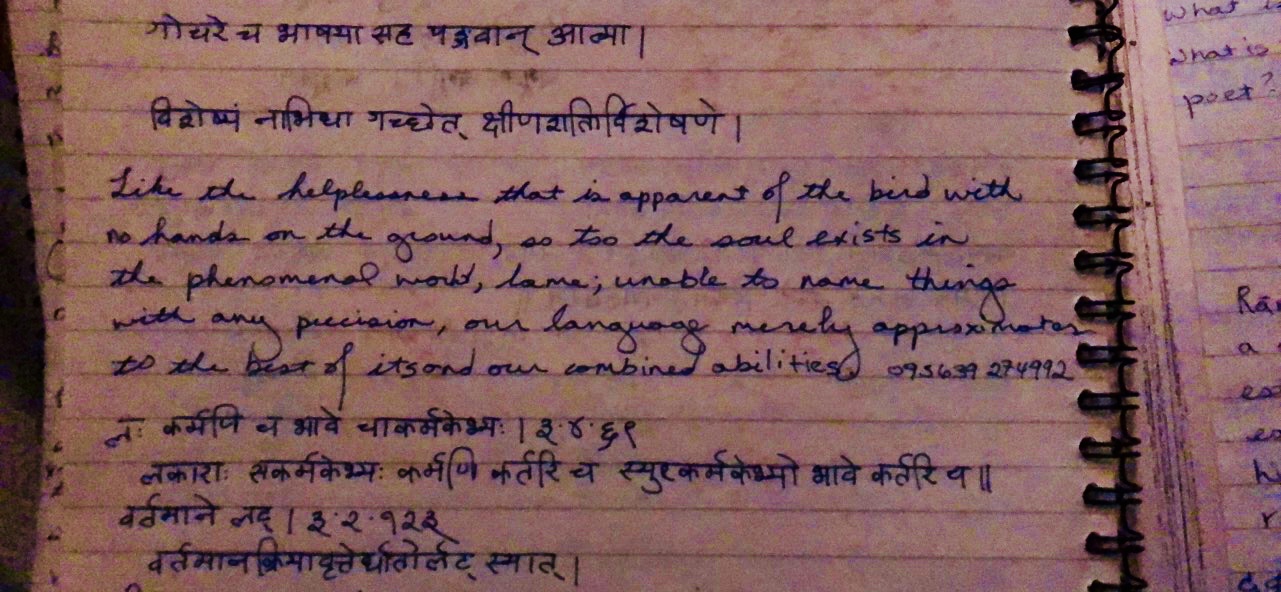 गोचरे च भाषया सह पङ्गवान् आत्मा।
विशेष्यं नाभिधा गच्छेत् क्षीणशक्तिर्विशेषणे।
Like the helplessness that is apparent of the bird with
no hands on the ground, so too the soul exists in
the phenomenal world, lame; unable to name things
with any precision, our language merely approximates
to the best of its and our combined abilities.
लः कर्मणि च भावे चाकर्मकेभ्यः। ३.४.६९
लकाराः सकर्मकेभ्यः कर्मणि कर्तरि च स्युरकर्मकेभ्यो भावे कर्तरि च॥
वर्तमाने लट्। ३.२.१२३
वर्तमानक्रियावृत्तेर्धातोर्लट् स्यात्।
what is
what is
poet?
a